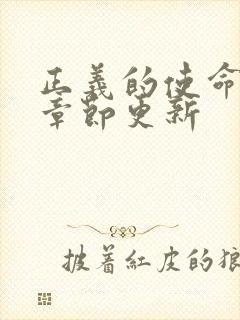 正義的使命
章節更新
披着紅皮的狼